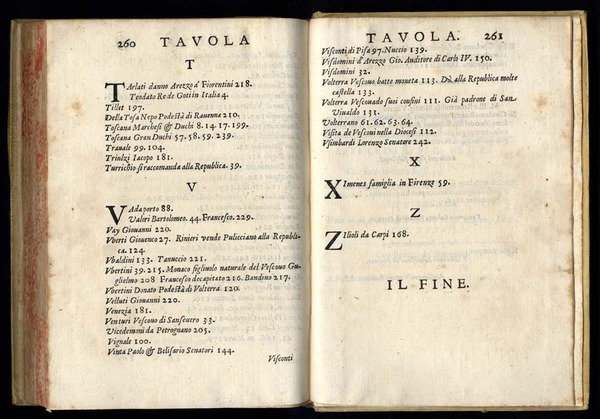 260 TAVOLA
T
Tarlati danno Arezzo à Fiorentini 218.
Teodato Re de Goti in Italia 4.
Tillet 197.
Della Tosa Nepo Podestà di Rauenna 210.
Toscana Marchesi & Duchi 8. 14. 17. 199.
Toscana Gran Duchi 57. 58. 59. 239.
Trauale 99. 104.
Triulzi Iacopo 181.
Turrichio si raccomanda alla Republica. 39.
V
VAda porto 88.
Valori Bartolomeo. 44. Francesco. 229.
Vay Giouanni 220.
Vberti Giouenco 27. Rinieri vende Pulicciano alla Republi-
ca. 124.
Vbaldini 133. Tanuccio 221.
Vbertini 39. 215. Monaco figliuolo naturale del Vescouo Gu-
glielmo 208 Francesco decapitato 216. Bandino 217.
Vbertini Donato Podestà di Volterra 120.
Velluti Giouanni 220.
Venezia 181.
Venturi Vescouo di Sanseuero 33.
Vicedomeni da Petrognano 205.
Vignale 100.
Vinta Paolo & Belisario Senatori 144.
Visconti
TAVOLA. 261
Visconti di Pisa 97. Nuccio 139.
Visdomini d'Arezzo Gio. Auditore di Carlo IV. 150.
Visdomini 32.
Volterra Vescouo batte moneta 113. Dà alla Republica molte
castella 133.
Volterra Vescouado suoi confini 111. Già padrone di San
Viualdo 131.
Volterrano 61. 62. 63. 64.
Visita de Vesconi nella Diocesi 112.
Vsimbardi Lorenzo Senatore 242.
X
XImenes famiglia in Firenze 59.
Z
ZIlioli da Carpi 168.
IL FINE.